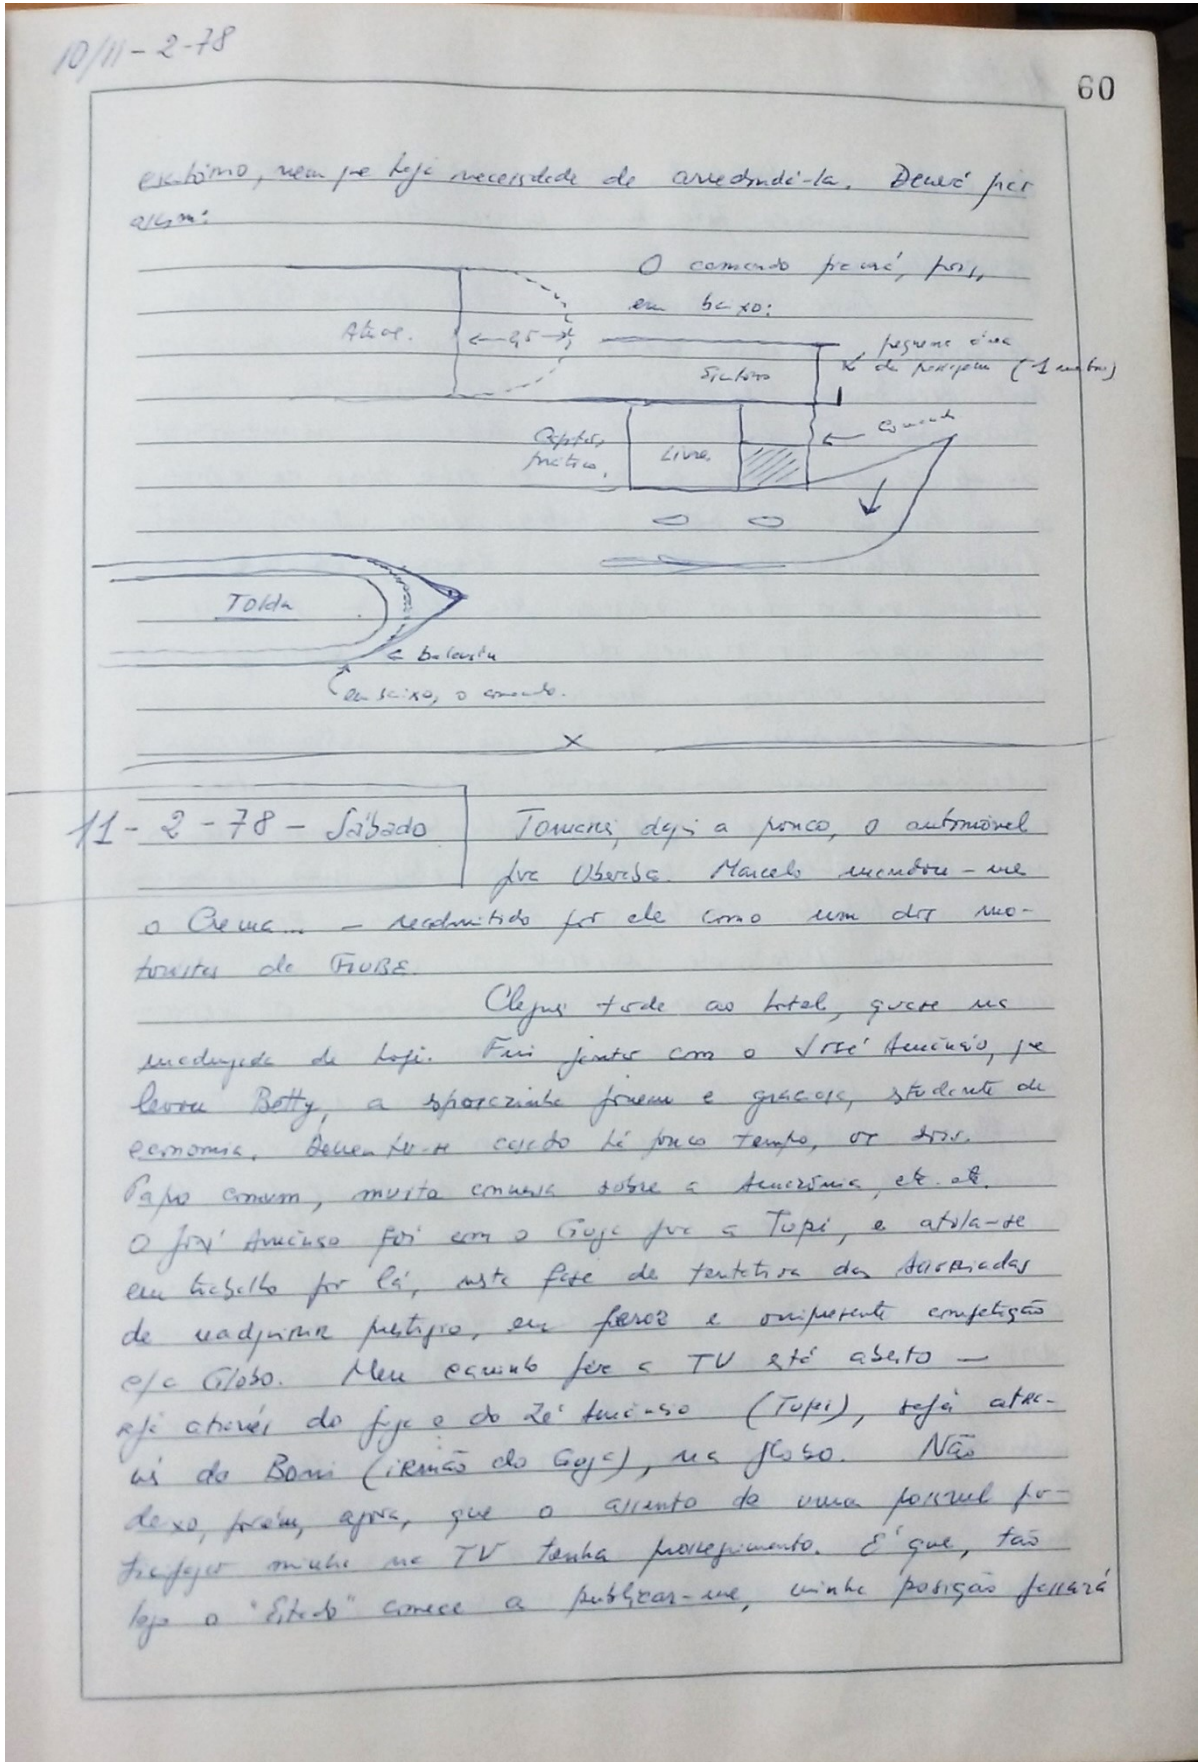 10/11 - 2 - 78
60
escritório, sem que haja necessidade de arredondá-la. Deverá ficar
assim:
O comando ficará, pois,
em baixo:
Atual.
pequena área
de passagem (-1 metro)
Comando
Livre
Tolda
em baixo, o comando.
X
11 - 2 - 78 - Sábado
Tomarei, daqui a pouco, o automóvel
pra Uberaba. Marcelo mandou-me
o Crema... - readmitido por ele como um dos mo-
toristas da FIUBE.
Cheguei tarde ao hotel, quase na
madrugada de hoje. Fui jantar com o José Amâncio, que
levou Betty, a esposazinha jovem e graciosa, estudante de
economia. Devem ter-se casado há pouco tempo, os dois.
Papo comum, muita conversa sobre a Amazônia, etc. etc.
O José Amâncio foi com o Guga pra a Tupi, e atola-se
em trabalho por lá, nesta fase de tentativa das Associadas
de readquirir prestígio, em feroz e onipresente competição
c/a Globo. Meu caminho para a TV está aberto —
seja através do Guga e do Zé Amâncio (Tupi), seja atra-
vés do Boni (irmão do Guga), na Globo. Não
deixo, porém, agora, que o assunto de uma possível par-
ticipação minha na TV tenha prosseguimento. É que, tão
logo o "Estado" comece a publicar-me, minha posição passará